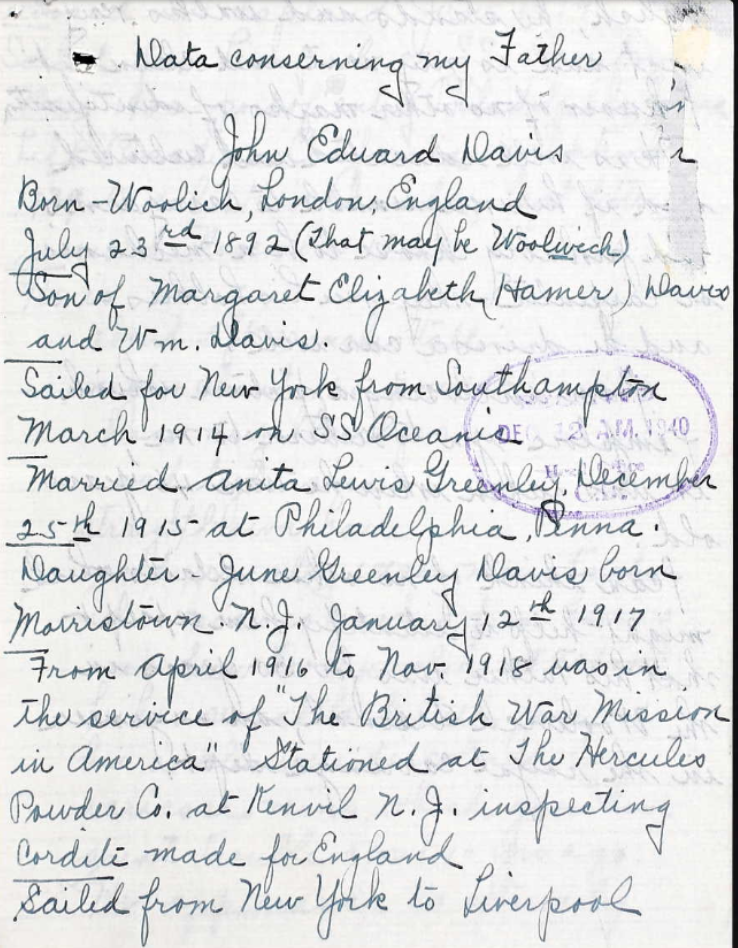 Data conserning my Father
John Eduard Davis
Born - Woolich, London, England
July 23rd 1892 (that may be Woolwich)
Son of Margaret Elizabeth (Hamer) Davis
and Wm. Davis.
Sailed for New York from Southampton
March 1914 on SS Oceanic
DEC 12 A.M. 1940
Married Anita Lewis Greenley, December
25th 1915 at Philadelphia, Penna.
Daughter - June Greenley Davis born
Morristown. N.J. January 12th 1917
From April 1916 to Nov. 1918 was in
the service of "The British War Mission
in America" Stationed at The Hercules
Powder Co. at Kenvil N.J. inspecting
Cordite made for England
Sailed from New York to Liverpool